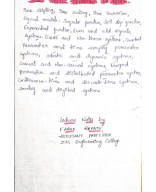 Time shifting, Time scaling, Time inversion,
Signal models: Impulse function, Unit step function,
Exponential function, Even and odd signals
System: Linear and Non-linear systems, Constant
Parameter and time varying parameter
systems, static and dynamic systems,
Causal and Non-causal systems, Lumped
parameter and distributed parameter systems,
Continuous-time and discrete-time systems,
analog and digital systems
Lecture Notes by
ASSISTANT PROFESSOR
Engineering College